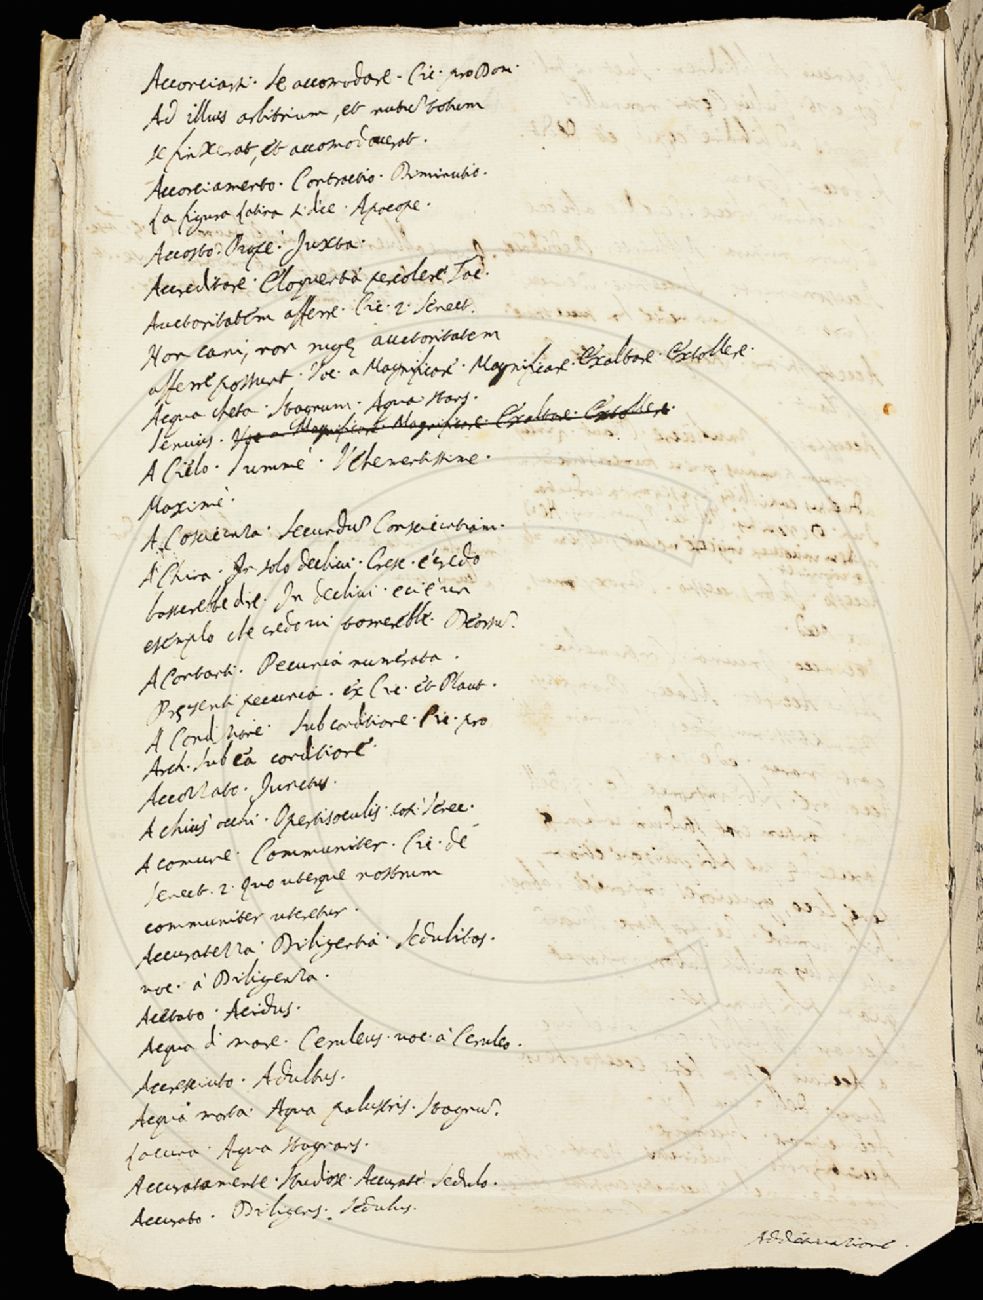 Accorciarsi. Se accomodare. Cic. pro Dom.
Ad illius arbitrium, et nutũ totum
se finxerat, et accomodaverat.
Accorciamento. Contractio. Diminutio.
La figura latina si dice. Apocope.
Accosto. Propè. Juxta.
Accreditare. Eloquentia
Auctoritatem afferre. Cic. 2. Senect.
Non cani, non rugę auctoritatem
afferre possunt. Voc. a Magnificare. Magnificare. Exaltare. Extollere.
Acqua cheta. Stagnum. Aqua stans.
Senuis. Voc. a Magnificare. Magnificare. Exaltare. Extollere.
A Cielo. Summè. Vehementissime.
Maximè.
A Coscienza. Secundũ Conscientiam.
A China. In solo declivi. Cresc. e credo
basterebbe dire. In declivi. e ci è un
esempio che credo vi tornerebbe. Deorsũ.
A Contanti. Pecunia numerata.
Pręsenti pecunia. ex Cic. et Plaut.
A Condizione. Sub conditione. Cic. pro
Arch. Sub ea conditione.
Accozzato. Junctus.
A chius' occhi. Opertis oculis. Senec.
A comune. Communiter. Cic. de
Senect. 2. Quo uterque nostrum
communiter uteretur.
Accuratezza. Diligentia. Sedulitas.
voc. à Diligenza.
Acetato. Acidus.
Acqua di mare. Ceruleus. voc. à Ceruleo.
Accresciuto. Adultus.
Acqua morta. Aqua palustris. Stagnũ.
Lacuna. Aqua stagnans.
Accuratamente. Studiose. Accuratè. Sedulo.
Accurato. Diligens. Sedulus.